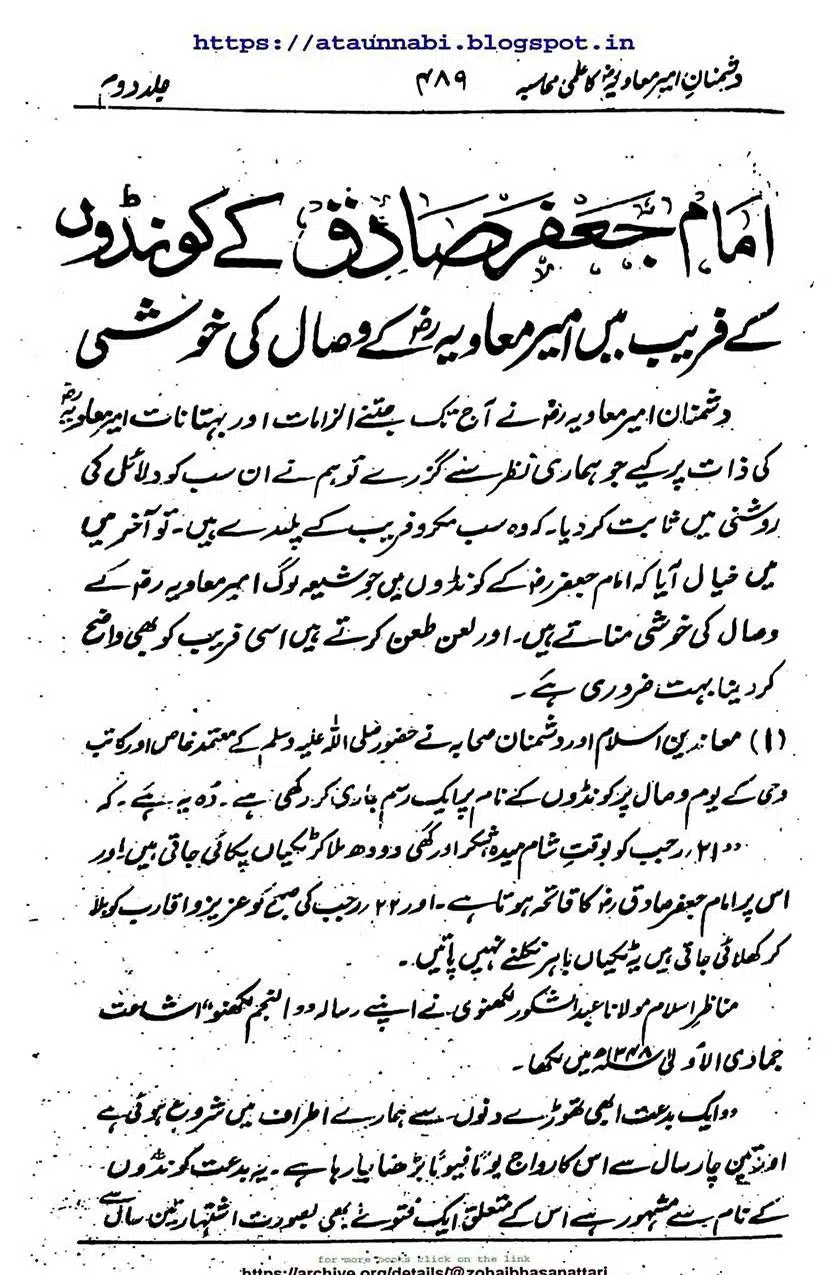 https://ataunnabi.blogspot.in
دشمنانِ امیر معاویہؓ کا علمی محاسبہ ۴۸۹ جلد دوم
امام جعفر صادق کے کونڈوں
کے فریب میں امیر معاویہ رضؓ کے وصال کی خوشی
دشمنان امیر معاویہ رضؓ نے آج تک جتنے الزامات اور بہتانات امیر معاویہ رضؓ
کی ذات پر کیے جو ہماری نظر سے گزرے تو ہم نے ان سب کو دلائل کی
روشنی میں ثابت کر دیا۔ کہ وہ سب مکرو فریب کے پلندے ہیں۔ تو آخر میں
میں خیال آیا کہ امام جعفر رضؓ کے کونڈوں میں جو شیعہ لوگ امیر معاویہ رضؓ کے
وصال کی خوشی مناتے ہیں۔ اور لعن طعن کرتے ہیں اسی فریب کو بھی واضح
کر دینا بہت ضروری ہے۔
(۱) معاندین اسلام اور دشمنان صحابہ نے حضور صلی اللہ علیہ وسلم کے معتمد خاص اور کاتب
وحی کے یوم وصال پر کونڈوں کے نام پر ایک رسم جاری کر رکھی ہے۔ وُہ یہ ہے۔ کہ
"۲۱ رجب کو بوقتِ شام میدہ شکر اور گھی دودھ ملا کر ٹکیاں پکائی جاتی ہیں اور
اس پر امام جعفر صادق رضؓ کا فاتحہ ہوتا ہے۔ اور ۲۲ رجب کی صبح کو عزیز و اقارب کو بلا
کر کھلائی جاتی ہیں یہ ٹکیاں باہر نکلنے نہیں پاتیں۔
مناظرِ اسلام مولانا عبدالشکور لکھنوی نے اپنے رسالہ "النجم لکھنو" اشاعت
جمادی الاولیٰ ۱۳۴۸ھ میں لکھا۔
"ایک بدعت ابھی تھوڑے دنوں سے ہمارے اطراف میں شروع ہوئی ہے
اور تین چار سال سے اس کا رواج یومًا فیومًا بڑھتا جا رہا ہے۔ یہ بدعت کونڈوں
کے نام سے مشہور ہے اس کے متعلق ایک فتویٰ بھی بصورت اشتہار تین سال سے
for more books click on the link
https://archive.org/details/@zohaibhasanattari